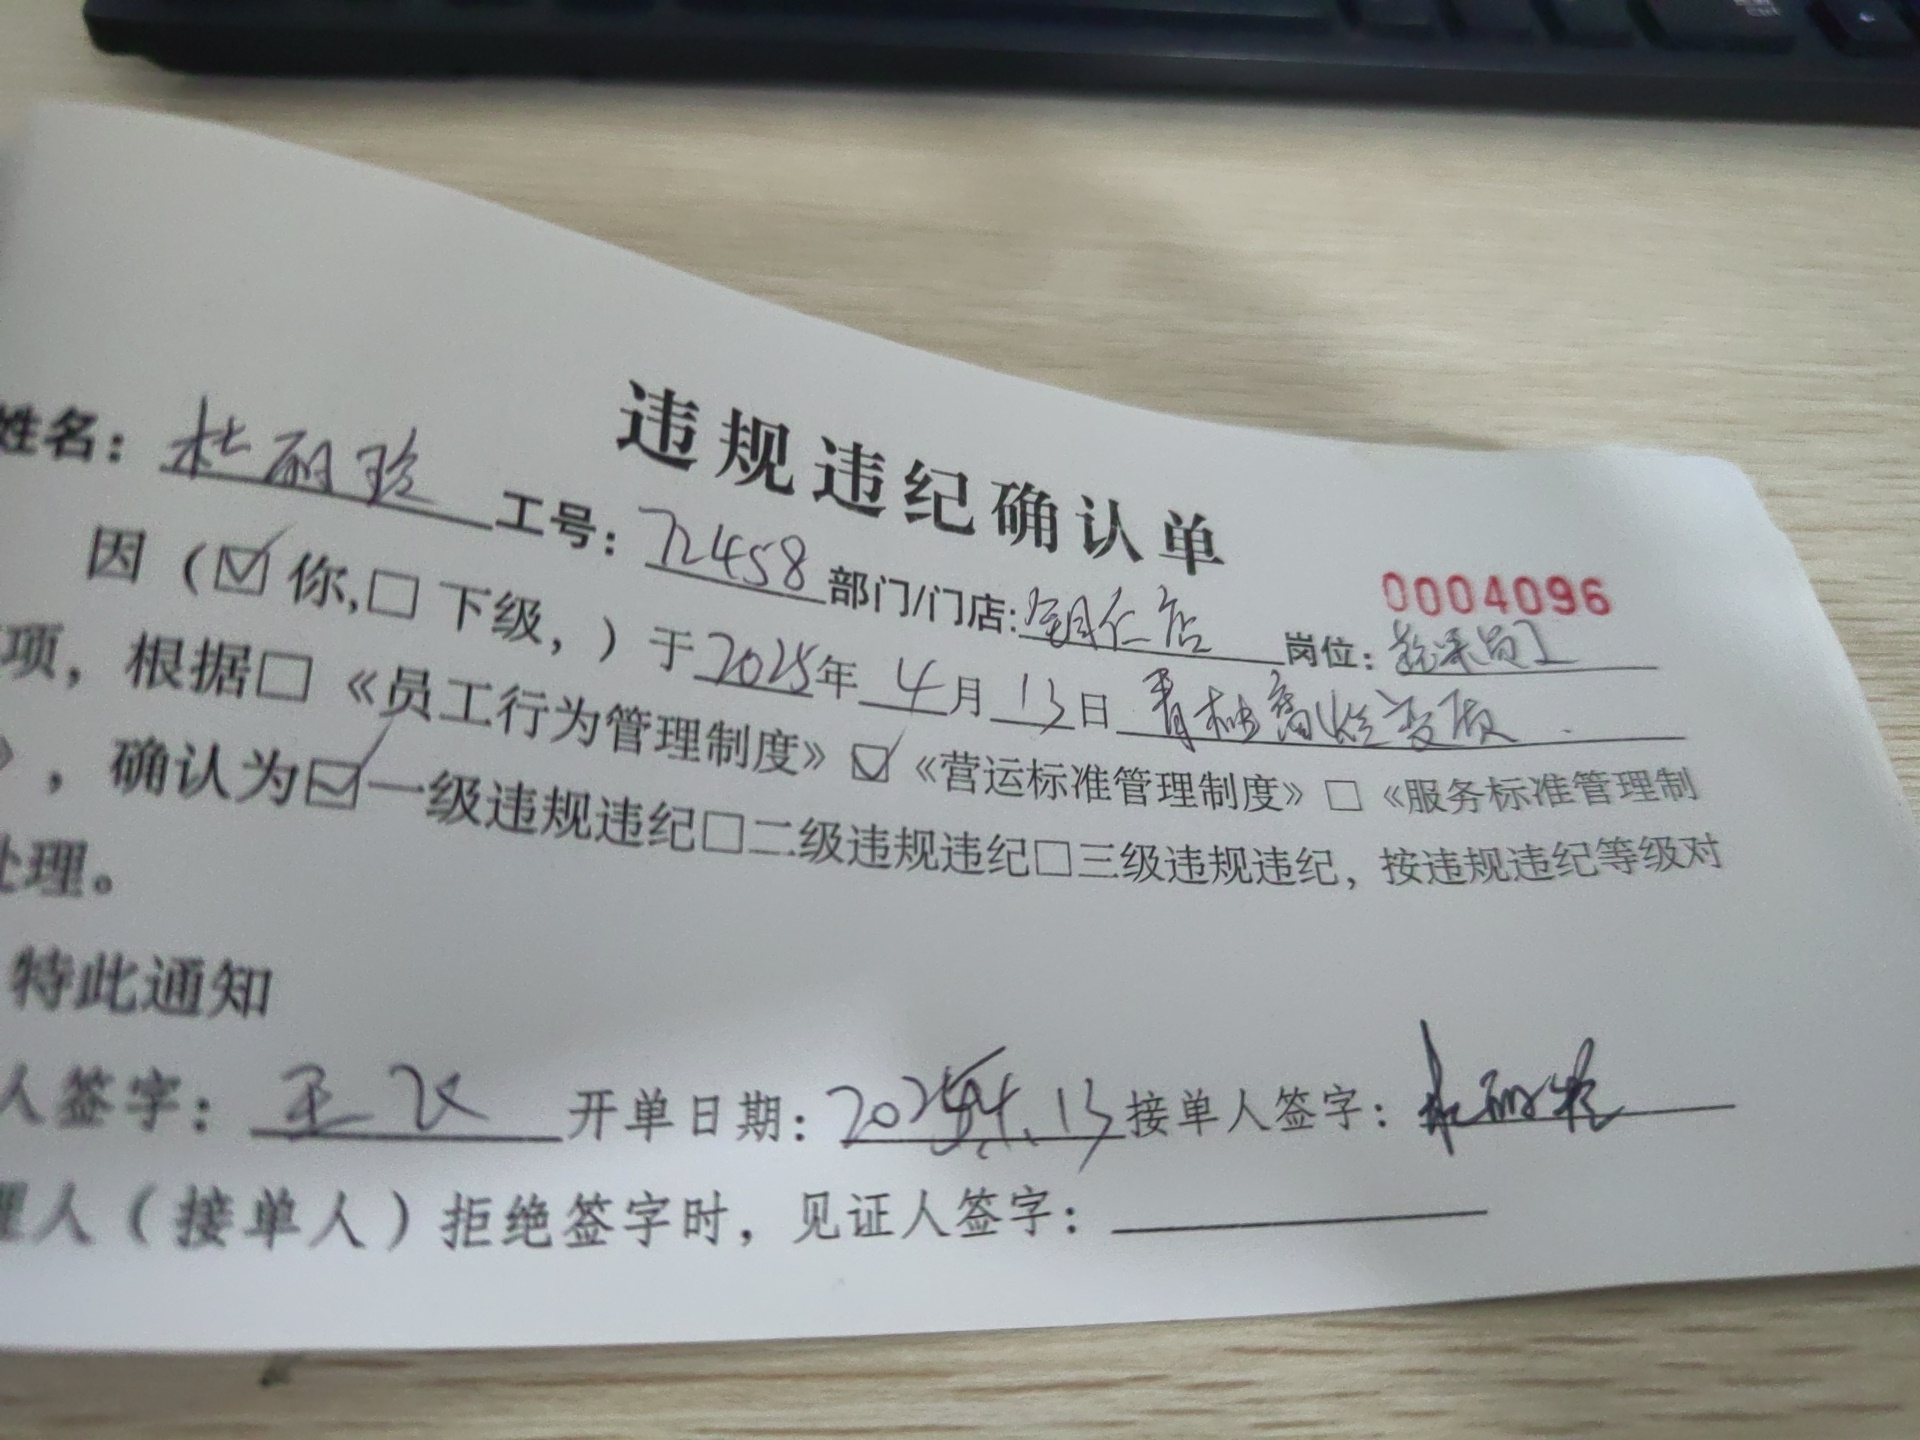 违规违纪确认单
0004096
姓名：杜丽玲 工号：72458 部门/门店：店 岗位：蔬果员工
因（☑你,□下级，）于2025年4月13日 青柚腐烂变质.
项，根据□《员工行为管理制度》☑《营运标准管理制度》□《服务标准管理制
》，确认为☑一级违规违纪□二级违规违纪□三级违规违纪，按违规违纪等级对
处理。
特此通知
人签字：王飞 开单日期：2025.4.13 接单人签字：杜丽玲
理人（接单人）拒绝签字时，见证人签字：